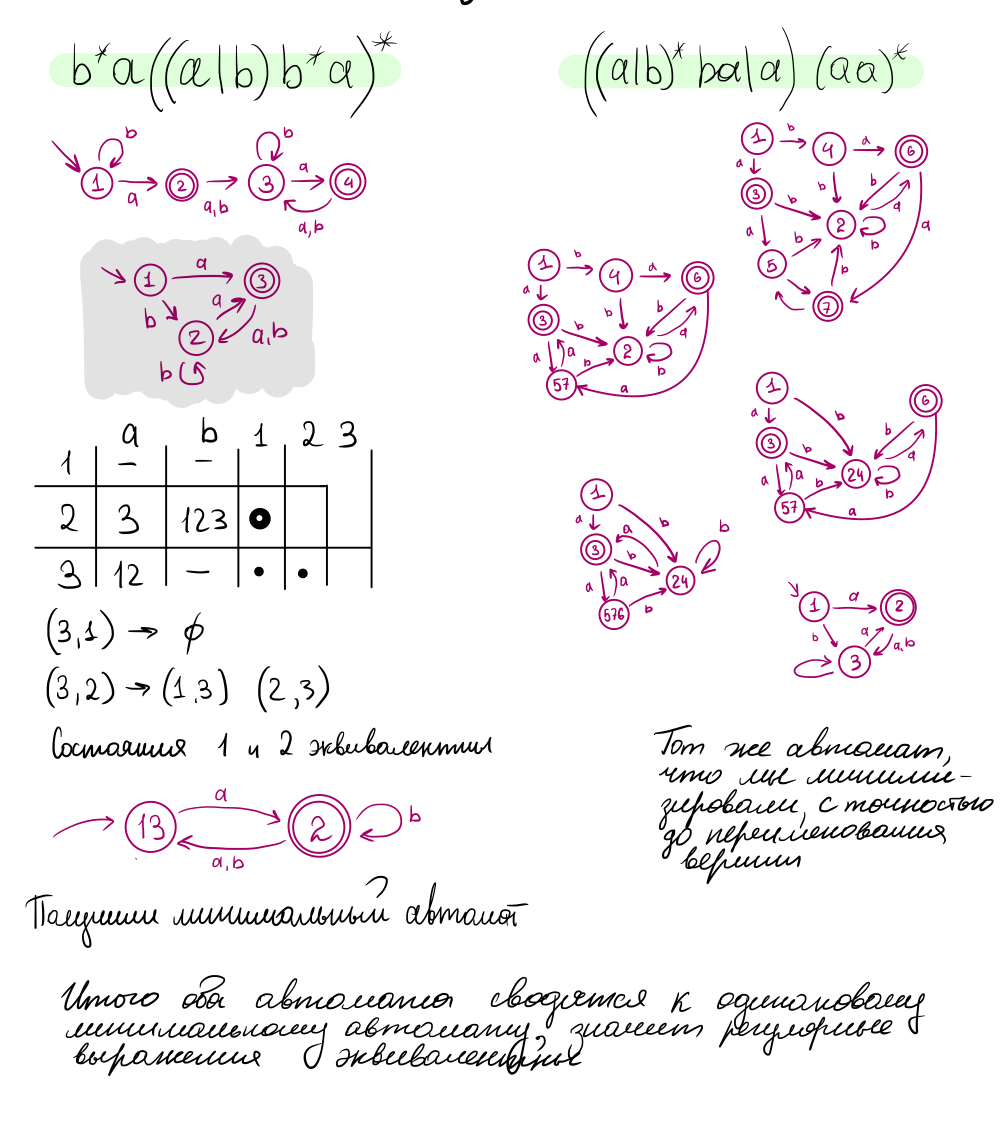 b*a((a|b)b*a)*
b
1 a 2 a,b 3 b a 4
a,b
1 a 3
b 2 a a,b
b
a b 1 2 3
1 – –
2 3 123
3 12 –
(3,1) → ϕ
(3,2) → (1,3) (2,3)
Состояния 1 и 2 эквивалентны
13 a 2 b
a,b
Получили минимальный автомат
((a|b)*ba|a)(aa)*
1 b 4 a 6
a b b a
3 b 2 b a
a b b
5 7
1 b 4 a 6
a b b a
3 b 2 b
a a b
57 a
1 b 6
a b a
3 b 24 b
a a b
57 a
1 b
a a b
3 b 24
a a b
576
1 a 2
b a a,b
3
Тот же автомат,
что мы миними-
зировали, с точностью
до переименования
вершин
Итого оба автомата сводятся к одинаковому
минимальному автомату, значит регулярные
выражения эквивалентные